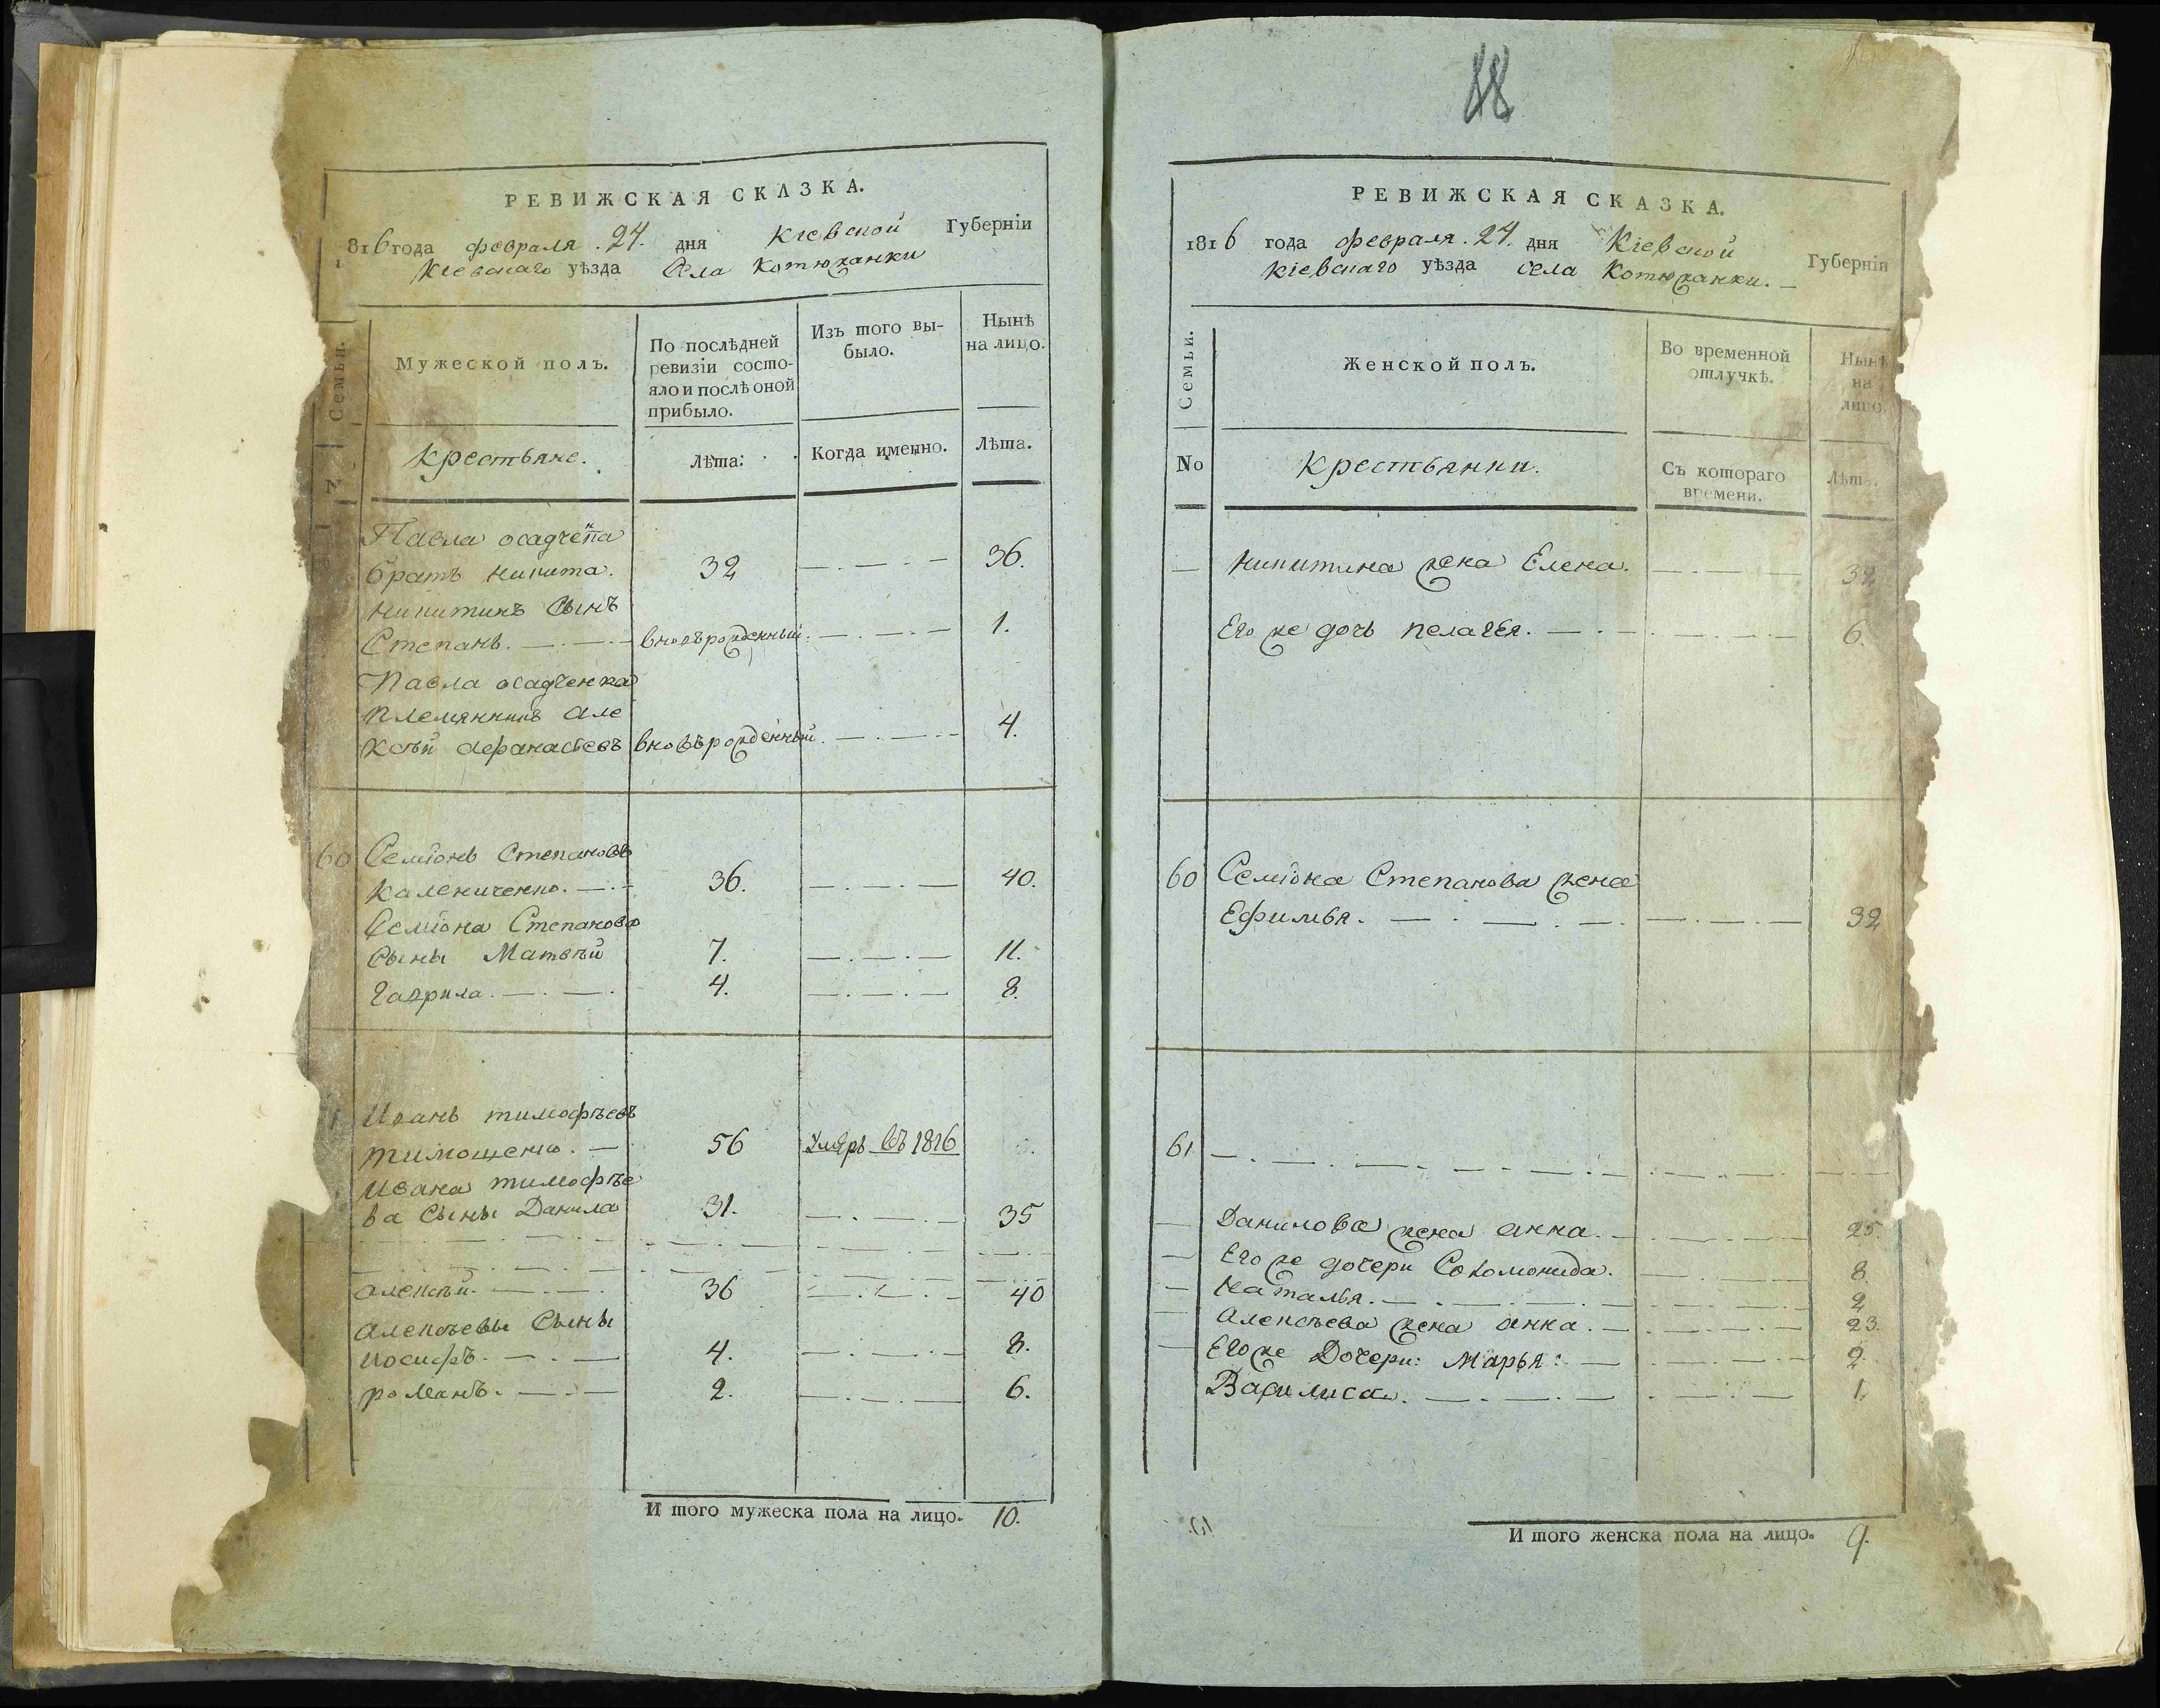 88
РЕВИЖСКАЯ СКАЗКА.
1816 года февраля 24. дня Кіевской Губерніи
Кіевскаго уѣзда Села Котюжанки
Семьи.
Мужеской полъ.
По послѣдней
ревизіи состо-
яло и послѣ оной
прибыло.
Изъ того вы-
было.
Нынѣ
на лицо.
N
Крестьяне.
Лѣта.
Когда именно.
Лѣта.
Павла осадченка
братъ никита. 32 36.
никитинъ Сынъ
Степанъ. вновърожденный. 1.
Павла осадченка
племянникъ але
ксѣй афанасьевъ вновърожденный. 4.
60 Семіонъ Степановъ
Калениченко. 36. 40.
Семіона Степанова
Сыны Матвѣй 7. 11.
гаврила. 4. 8.
1 Иванъ тимофѣевъ
тимощенко. 56 умѣръ въ 1816
Ивана тимофѣе
ва Сыны Данила 31. 35
алексѣй. 36 40
алексѣевы Сыны
иосифъ. 4. 8.
романъ. 2. 6.
И того мужеска пола на лицо. 10.
РЕВИЖСКАЯ СКАЗКА.
1816 года февраля. 24. дня Кіевской Губерніи
Кіевскаго уѣзда села Котюжанки.
Семьи.
Женской полъ.
Во временной
отлучкѣ.
Нынѣ
на
лицо.
No
Крестьянки.
Съ котораго
времени.
Лѣта.
Никитина жена Елена. 32
Его же дочь пелагея. 6.
60 Семіона Степанова жена
Ефимья. 32
61
Данилова жена анна. 25
Его же дочери Соломонида. 8.
Наталья. 2
Алексѣева жена анна. 23.
Его же Дочери: Марья: 2.
Василиса. 1.
И того женска пола на лицо. 9.